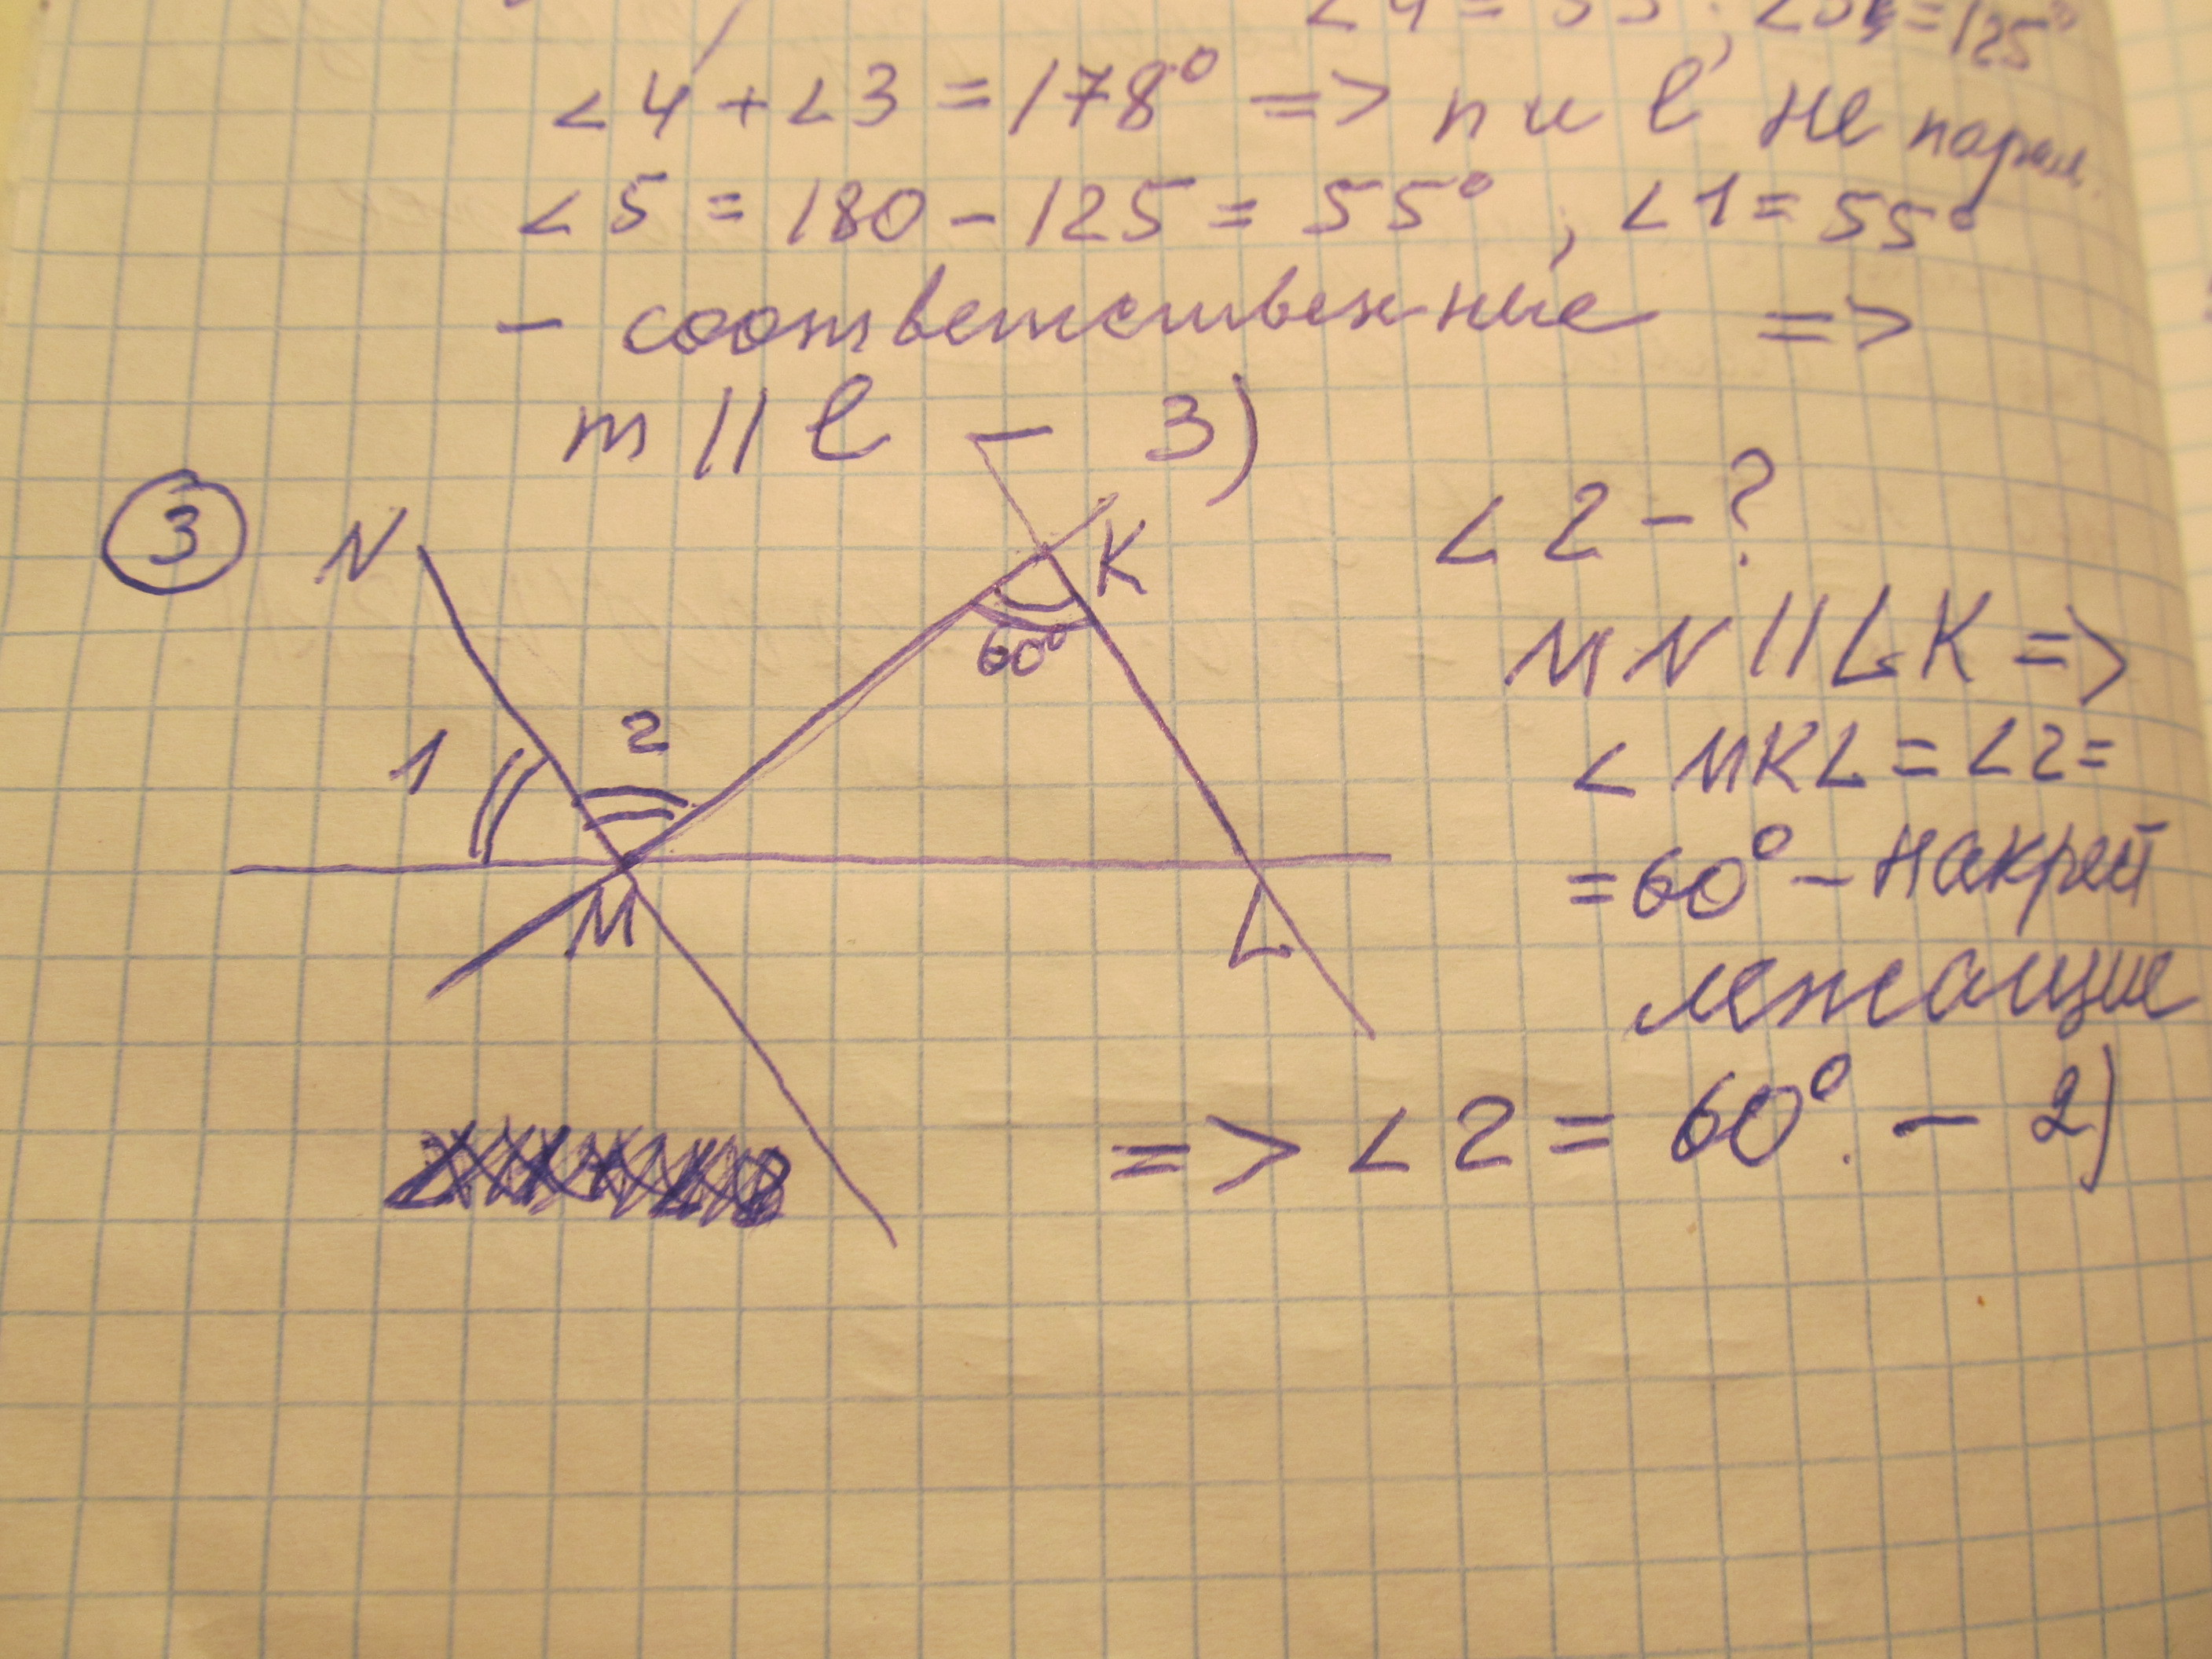 ∠4 + ∠3 = 178° => n и l не парал.
∠5 = 180 - 125 = 55°, ∠1 = 55°
- соответственные =>
m || l - 3)
3
N
K
60°
1
2
M
L
∠2 - ?
MN || LK =>
∠MKL = ∠2 =
= 60° - накрест
лежащие
=> ∠2 = 60°. - 2)